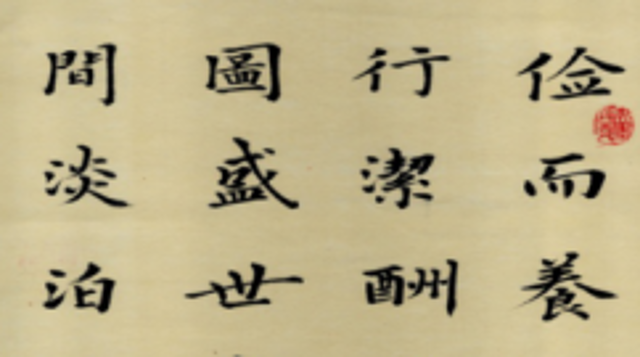 俭而養
行潔酬
圖盛世
間淡泊